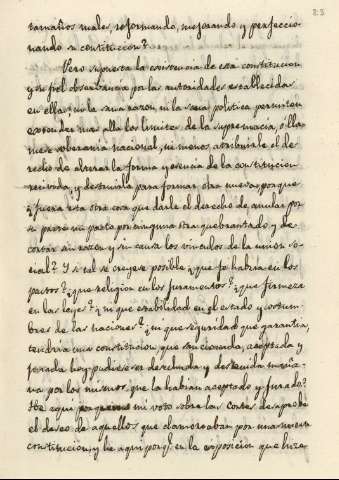 83
tamaños males, reformando, mejorando y perfeccio-
nando su constitucion?
Pero supuesta la existencia de esta constitucion
y su fiel observancia por las autoridades establecidas
en ella, ni la sana razon, ni la sana politica permiten
extender mas allá los límites de la supremacía, ó llá-
mese soberanía nacional, ni menos atribuirle el de-
recho de alterar la forma y esencia de la constitucion
recivida, y destruirla para formar otra nueva, porque
¿fuera esta otra cosa que darle el derecho de anular por
su parte un pacto por ninguna otra quebrantado, y de
cortar sin razon y sin causa los vínculos de la union so-
cial? Y si tal se creyese posible ¿que fe habría en los
pactos? ¿que religion en los juramentos? ¿que firmeza
en las leyes? ¿ni que estabilidad en el estado y costum-
bres de las naciones? ¿ni que seguridad, que garantía,
tendria una constitucion, que sancionada, aceptada y
jurada hoy pudiese ser desechada y destruida maña-
na por los mismos que la habían aceptado y jurado?
He aqui porque en mi voto sobre las Cortes desaprobé
el deseo de aquellos que clamoreaban por una nueva
constitucion, y he aqui porq.e en la exposicion que hize